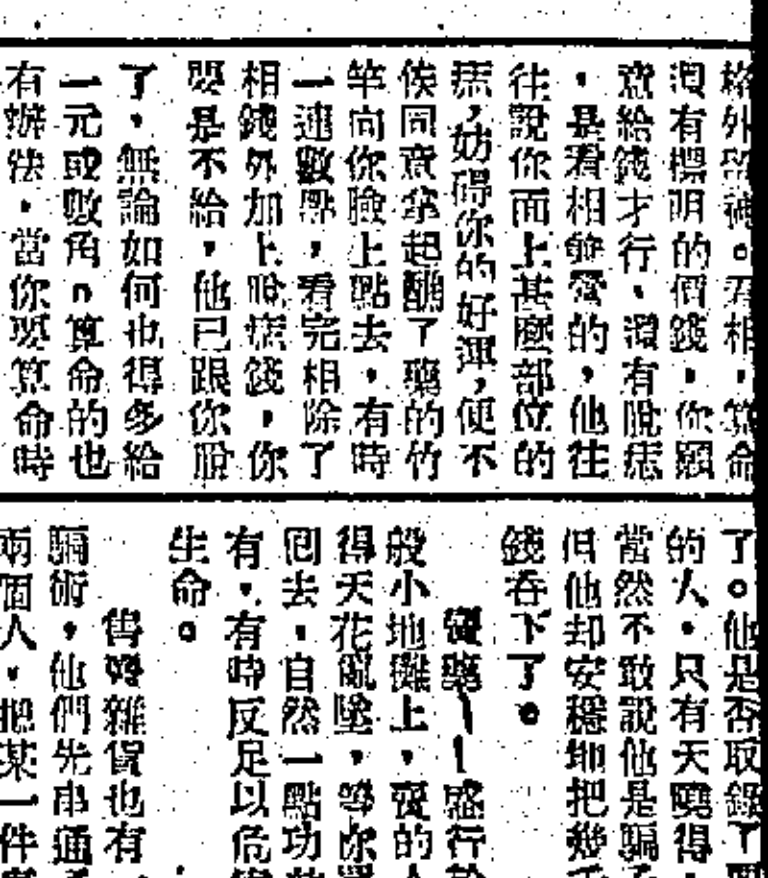 格外留神。看相,算命
沒有標明的價錢,你願
意給錢才行、還有脫痣
,是看相兼營的,他往
往說你面上甚麼部位的
痣,妨碍你的好運,便不
俟同意拿起醮了藥的竹
竿向你臉上點去,有時
一連數點,看完相除了
相錢外加上脫痣錢,你
要是不給,他已跟你脫
了,無論如何也得多給
一元或數角。算命的也
有辦法,當你要算命時
了。他是否取錄了
的人,只有天曉得,
當然不敢說他是騙子
但他却安穩地把幾千
錢吞下了。
賣藥——盛行於
般小地攤上,賣的人
得天花亂墜,等你
囘去,自然一點功
有,有時反足以危
生命。
售賣雜貨也有
騙術,他們先串通
兩個人,把某一件